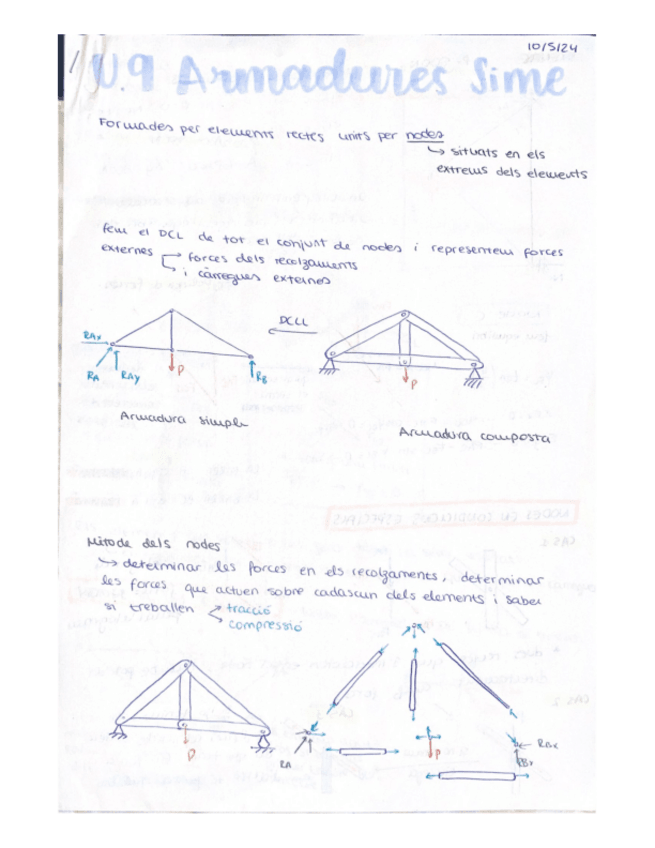 10/5/24
U.9 Armadures Sime
Formades per elements rectes units per nodes
↳ situats en els
extrems dels elements
fem el DCL de tot el conjunt de nodes i representem forces
externes → forces dels recolzaments
↳ i càrregues externes
DCLL
RAx
RA RAy P RB
P
Armadura simple
Armadura composta
Mètode dels nodes
↳ determinar les forces en els recolzaments, determinar
les forces que actuen sobre cadascun dels elements i saber
si treballen → tracció
compressió
P
RA
P
RBx